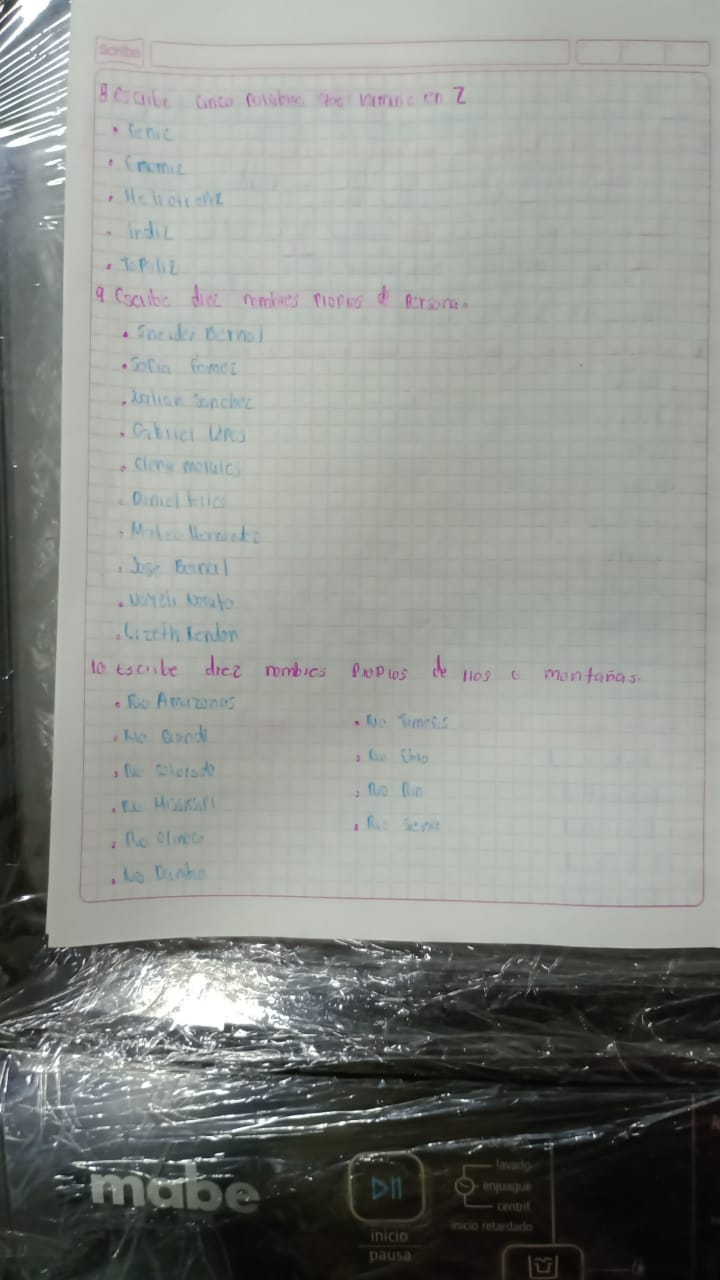 Scribe
8 Escribe cinco palabras que termine en Z
• Fenic
• Enorniz
• Heliotropiz
• indiz
• Tapiliz
9 Escribe diez nombres propios de persona.
• Sneider Bernal
• Sofia Gomez
• Julian Sanchez
• Gabriel
• Elena morales
• Daniel
• Mateo Hernandez
• Jose Bernal
• Nayeli
• Lizeth Rendon
10 Escribe diez nombres propios de rios o montañas.
• Rio Amazonas
• Rio Grande
• Rio Colorado
• Rio Misisipi
• Rio Olinoco
• Rio Danbio
• Rio Tamesis
• Rio Ebro
• Rio Rin
• Rio Sena
mabe
inicio
pausa
lavado
enjuague
centrif.
inicio retardado